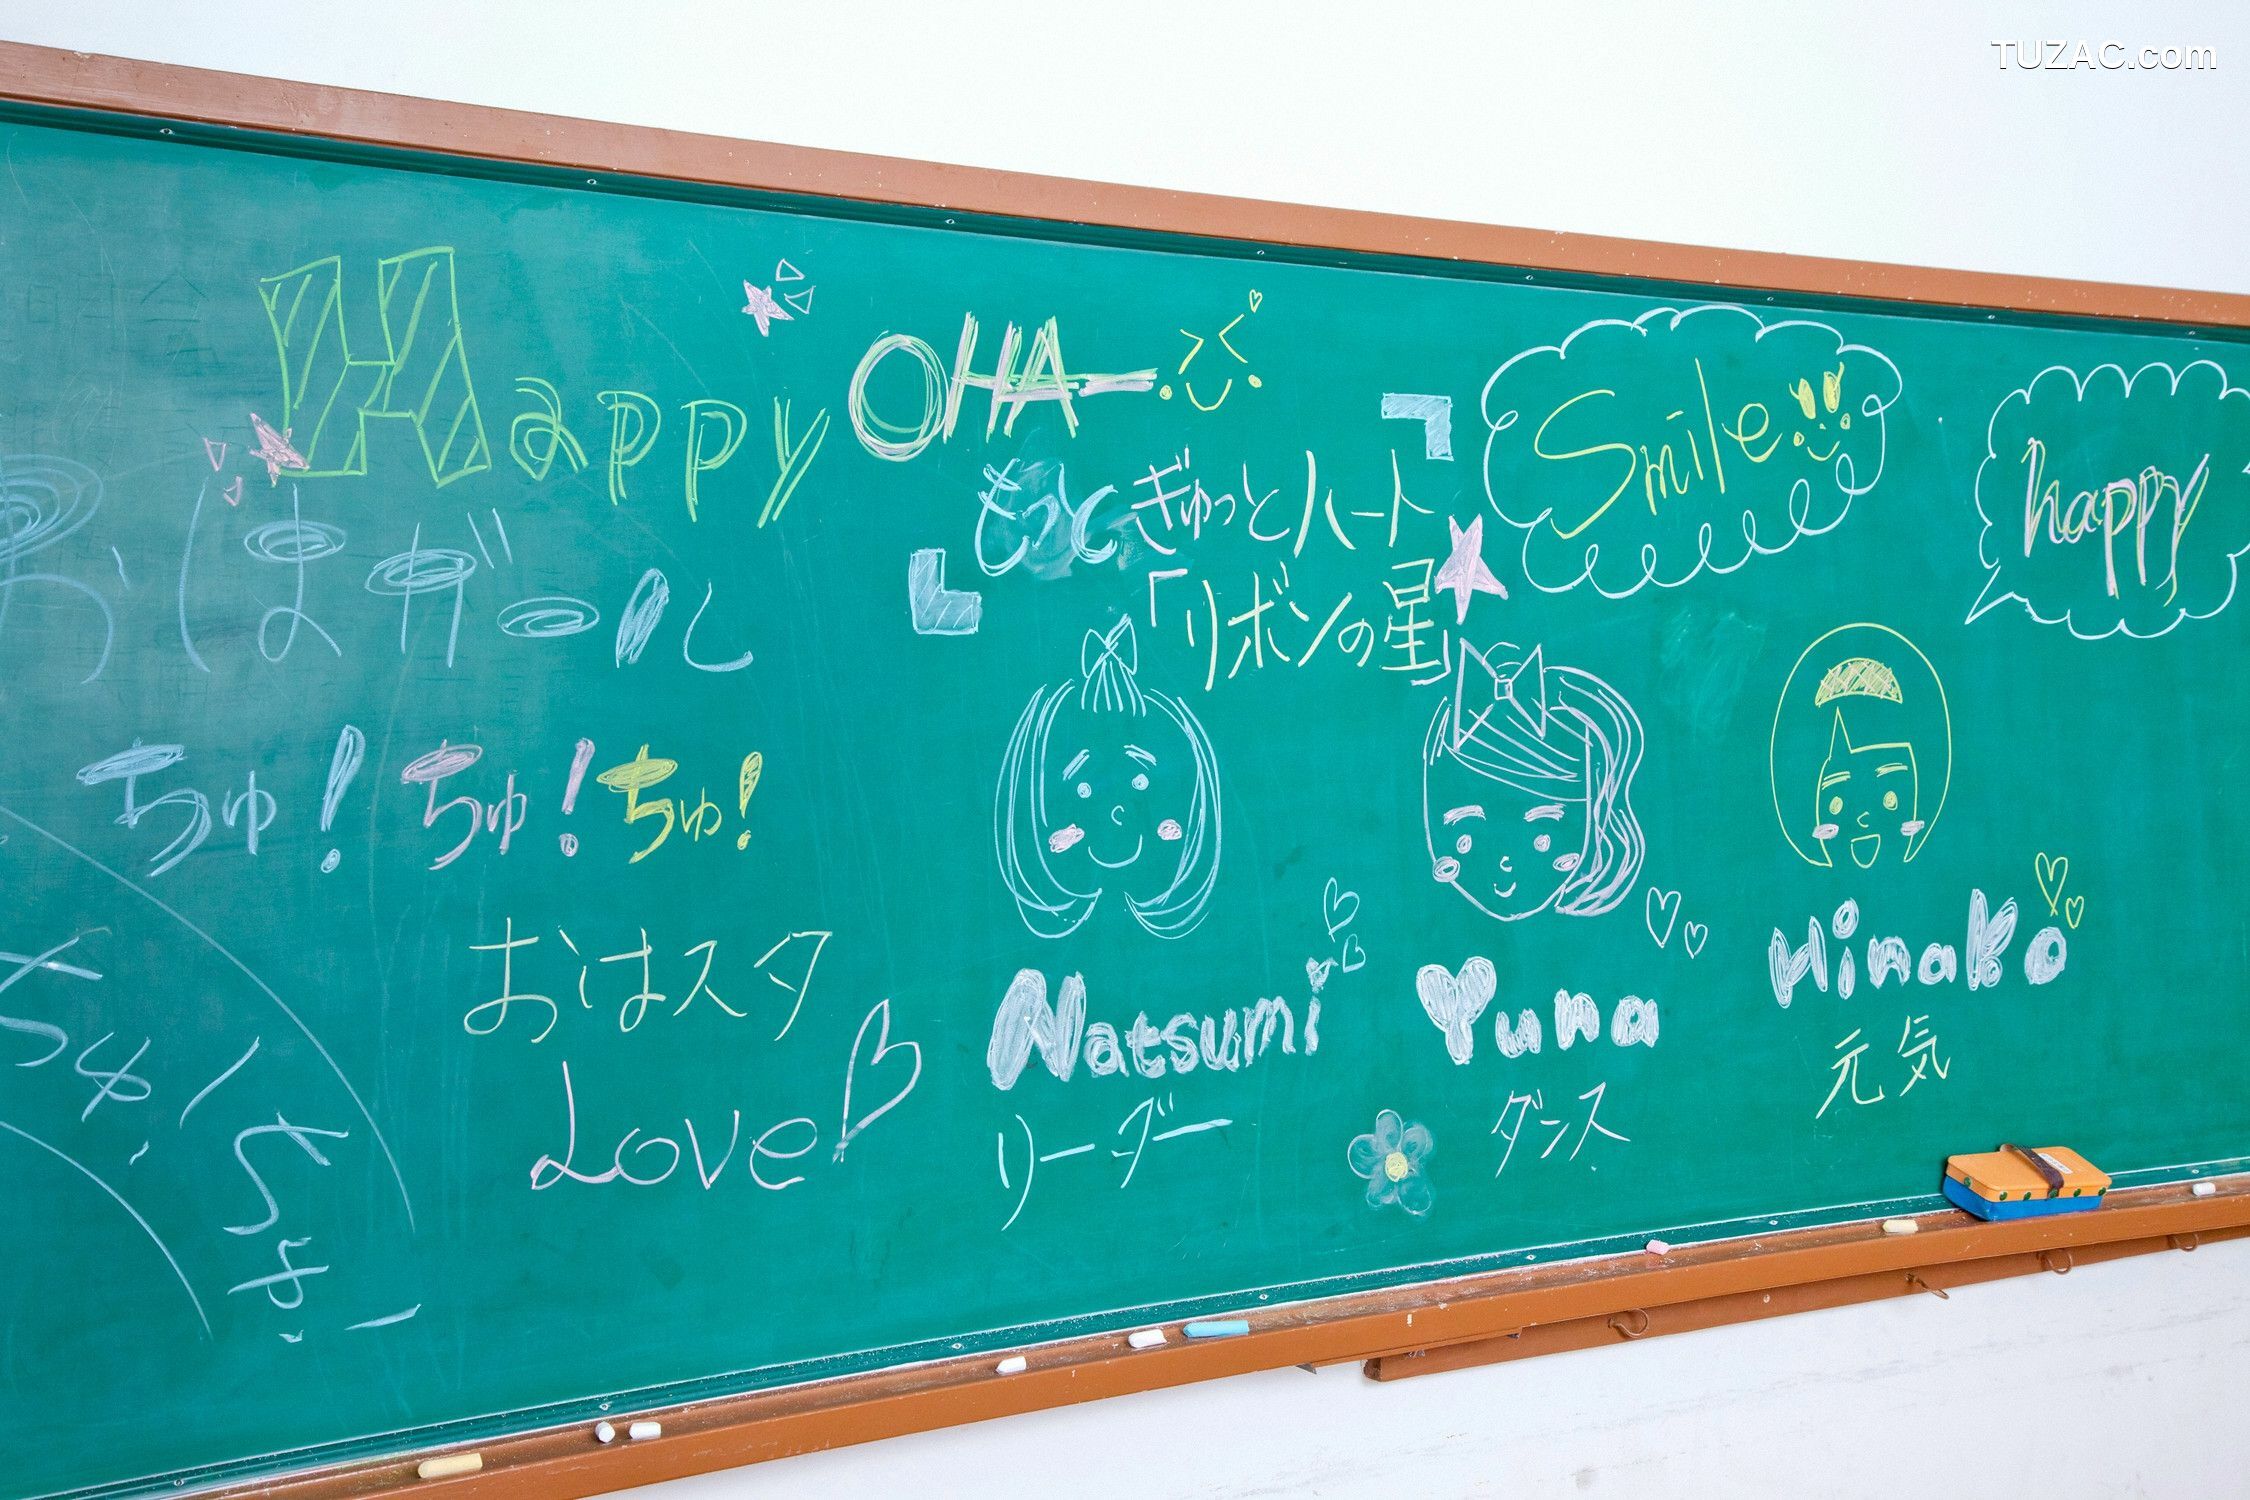 TUZAC.com
Happy
OHA—
おはガール
ちゅ!ちゅ!ちゅ!
おはスタ
Love
ちゅ!
ちゅ!
もっとぎゅっとハート
「リボンの星」
Smile
happy
Natsumi
リーダー
Yuna
ダンス
Hinako
元気